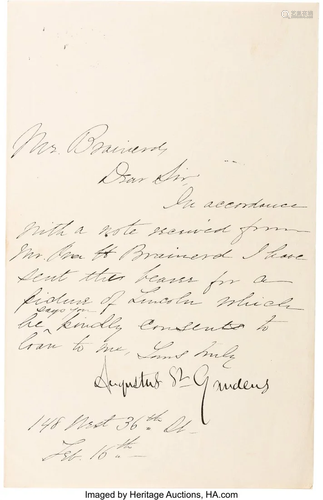 Mr. Brainerd,
Dear Sir
In accordance
with a note received from
Mr. Wm H Brainerd I have
sent the bearer for a
picture of Lincoln which
says you
he kindly consents to
loan to me. Yours truly
Augustus St Gaudens
148 West 36th. St.
Feb. 16th.
Imaged by Heritage Auctions, HA.com